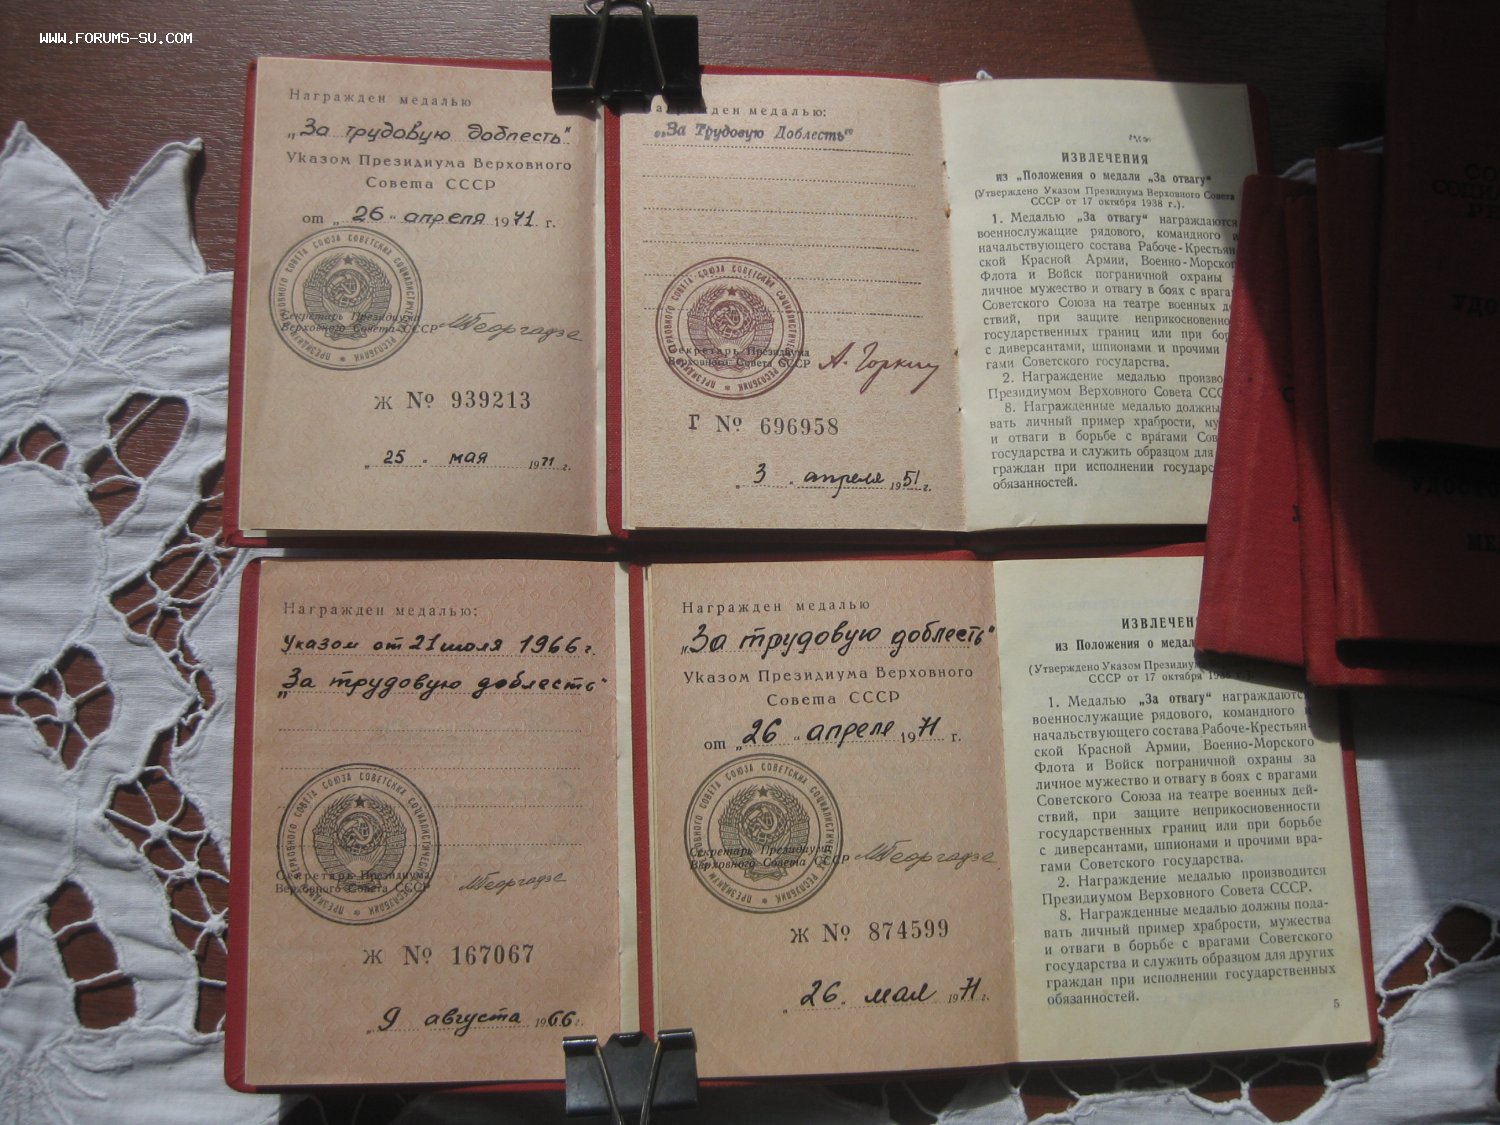 WWW.FORUMS-SU.COM
Награжден медалью
„За трудовую доблесть“
Указом Президиума Верховного
Совета СССР
от „26“ апреля 1971 г.
ПРЕЗИДИУМ ВЕРХОВНОГО СОВЕТА СОЮЗА СОВЕТСКИХ СОЦИАЛИСТИЧЕСКИХ РЕСПУБЛИК
Секретарь Президиума
Верховного Совета СССР
МГеоргадзе
Ж № 939213
„25“ мая 1971 г.
Награжден медалью:
„За Трудовую Доблесть“
ПРЕЗИДИУМ ВЕРХОВНОГО СОВЕТА СОЮЗА СОВЕТСКИХ СОЦИАЛИСТИЧЕСКИХ РЕСПУБЛИК
Секретарь Президиума
Верховного Совета СССР
А. Горкин
Г № 696958
„3“ апреля 1951 г.
ИЗВЛЕЧЕНИЯ
из „Положения о медали „За отвагу“
(Утверждено Указом Президиума Верховного Совета
СССР от 17 октября 1938 г.).
1. Медалью „За отвагу“ награждаются
военнослужащие рядового, командного и
начальствующего состава Рабоче-Крестьян-
ской Красной Армии, Военно-Морского
Флота и Войск пограничной охраны
личное мужество и отвагу в боях с врага
Советского Союза на театре военных де
ствий, при защите неприкосновенно
государственных границ или при бор
с диверсантами, шпионами и прочими
гами Советского государства.
2. Награждение медалью произво
Президиумом Верховного Совета ССС
8. Награжденные медалью должны
вать личный пример храбрости, му
и отваги в борьбе с врагами Сов
государства и служить образцом для
граждан при исполнении государс
обязанностей.
Награжден медалью:
Указом от 21 июля 1966 г.
„За трудовую доблесть“
ПРЕЗИДИУМ ВЕРХОВНОГО СОВЕТА СОЮЗА СОВЕТСКИХ СОЦИАЛИСТИЧЕСКИХ РЕСПУБЛИК
Секретарь Президиума
Верховного Совета СССР
МГеоргадзе
Ж № 167067
„9 августа 1966 г.
Награжден медалью
„За трудовую доблесть“
Указом Президиума Верховного
Совета СССР
от „26“ апреля 1971 г.
ПРЕЗИДИУМ ВЕРХОВНОГО СОВЕТА СОЮЗА СОВЕТСКИХ СОЦИАЛИСТИЧЕСКИХ РЕСПУБЛИК
Секретарь Президиума
Верховного Совета СССР
МГеоргадзе
Ж № 874599
„26“ мая 1971 г.
ИЗВЛЕЧЕН
из Положения о медал
(Утверждено Указом Президиу
СССР от 17 октября 1938 г.).
1. Медалью „За отвагу“ награждаются
военнослужащие рядового, командного и
начальствующего состава Рабоче-Крестьян-
ской Красной Армии, Военно-Морского
Флота и Войск пограничной охраны за
личное мужество и отвагу в боях с врагами
Советского Союза на театре военных дей-
ствий, при защите неприкосновенности
государственных границ или при борьбе
с диверсантами, шпионами и прочими вра-
гами Советского государства.
2. Награждение медалью производится
Президиумом Верховного Совета СССР.
8. Награжденные медалью должны пода-
вать личный пример храбрости, мужества
и отваги в борьбе с врагами Советского
государства и служить образцом для других
граждан при исполнении государственных
обязанностей.
5